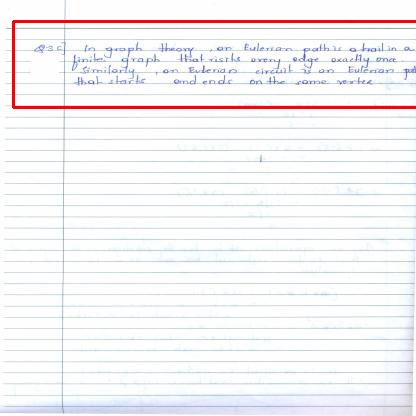 Q.3 C] In graph theory, an Eulerian path is a trail in a
finite graph that visits every edge exactly one
Similarly, an Eulerian circuit is an Eulerian
that starts and ends on the same vertex